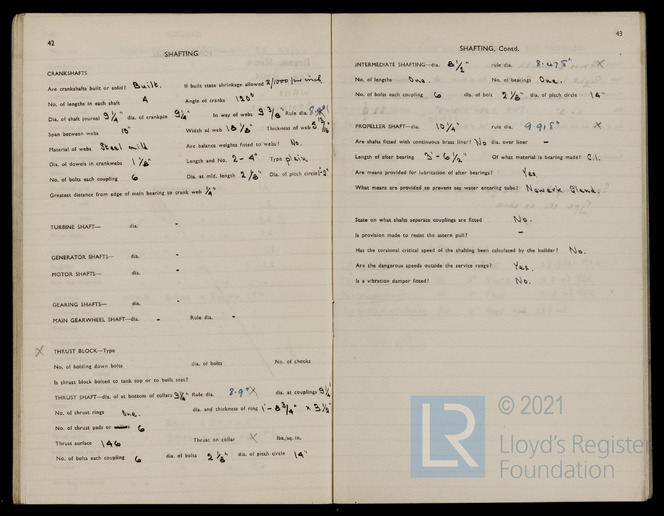 42
SHAFTING
CRANKSHAFTS
Are crankshafts built or solid? Built. If built state shrinkage allowed 2/1000 per inch
No. of lengths in each shaft 4 Angle of cranks 120°
Dia. of shaft journal 9 1/4" dia. of crankpin 9 1/4" In way of webs 9 3/8" Rule dia.
Span between webs Width of web 18 1/8" Thickness of web 5
Material of webs Steel mild Are balance weights fitted to webs? No.
Dia. of dowels in crankwebs 1 1/8" Length and No. 2 - 4" Type plain
No. of bolts each coupling 6 Dia. at mid. length 2 1/8" Dia. of pitch circle
Greatest distance from edge of main bearing to crank web 1/4"
TURBINE SHAFT— dia. -
GENERATOR SHAFTS— dia. -
MOTOR SHAFTS— dia. -
GEARING SHAFTS— dia. -
MAIN GEARWHEEL SHAFT—dia. - Rule dia. -
X THRUST BLOCK—Type
No. of holding down bolts dia. of bolts No. of chocks
Is thrust block bolted to tank top or to built seat?
THRUST SHAFT—dia. of at bottom of collars 9 1/4" Rule dia. 8.9" X dia. at couplings 9 1/4"
No. of thrust rings One. dia. and thickness of ring 1'-8 3/4" x 3 1/2"
No. of thrust pads or 6
Thrust surface 146 Thrust on collar X lbs./sq. in.
No. of bolts each coupling 6 dia. of bolts 2 1/8" dia. of pitch circle 14"
43
SHAFTING, Contd.
INTERMEDIATE SHAFTING—dia. 8 1/2" rule dia. 8.475" X
No. of lengths One. No. of bearings One.
No. of bolts each coupling 6 dia. of bolt 2 1/8" dia. of pitch circle 14"
PROPELLER SHAFT—dia. 10 1/4" rule dia. 9.915" X
Are shafts fitted with continuous brass liner? No dia. over liner -
Length of after bearing 3'-6 1/2" Of what material is bearing made? C.I.
Are means provided for lubrication of after bearings? Yes.
What means are provided to prevent sea water entering tube? Newark Gland.
State on what shafts separate couplings are fitted No.
Is provision made to resist the astern pull? -
Has the torsional critical speed of the shafting been calculated by the builder? No.
Are the dangerous speeds outside the service range? Yes.
Is a vibration damper fitted? No.
LR
© 2021
Lloyd's Register
Foundation